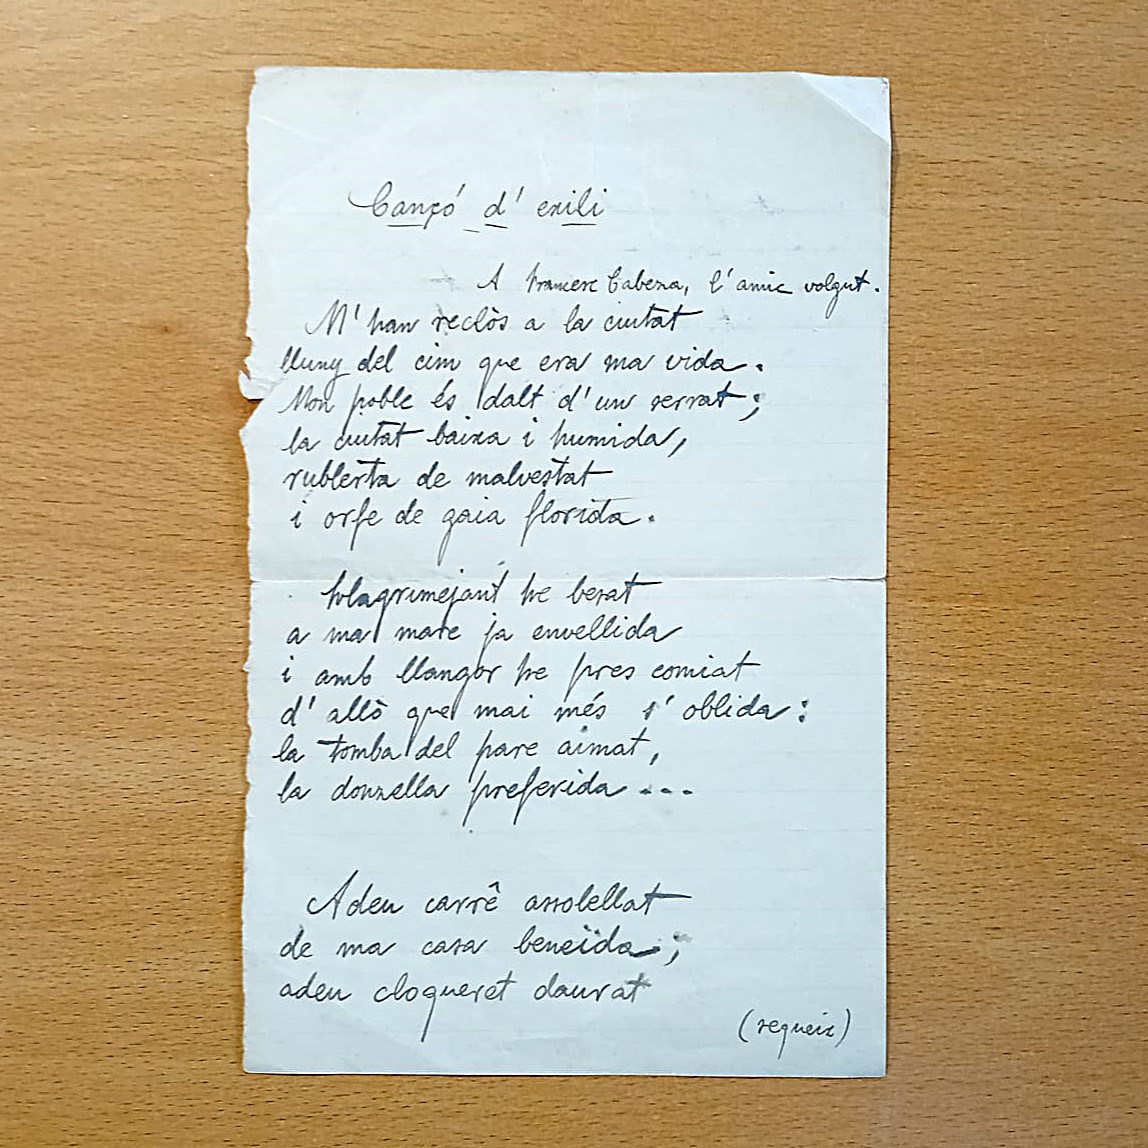 Cançó d' exili
A Francesc Cabeza, l'amic volgut.
M'han reclòs a la ciutat
lluny del cim que era ma vida.
Mon poble és dalt d'un serrat;
la ciutat baixa i humida,
rublerta de malvestat
i orfe de gaia florida.
Llagrimejant he besat
a ma mare ja envellida
i amb llangor he pres comiat
d'allò que mai més s'oblida:
la tomba del pare aimat,
la donzella preferida...
Adeu carrê assolellat
de ma casa beneïda;
adeu cloqueret daurat
(segueix)